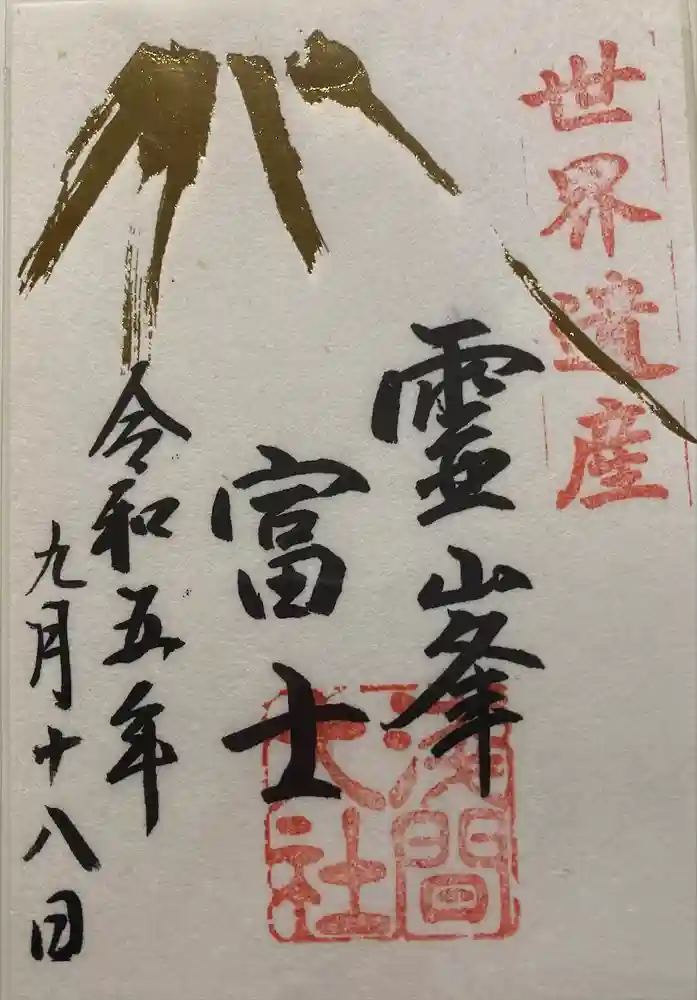 世界遺産
霊峯
富士
令和五年
九月十八日
浅間
大社